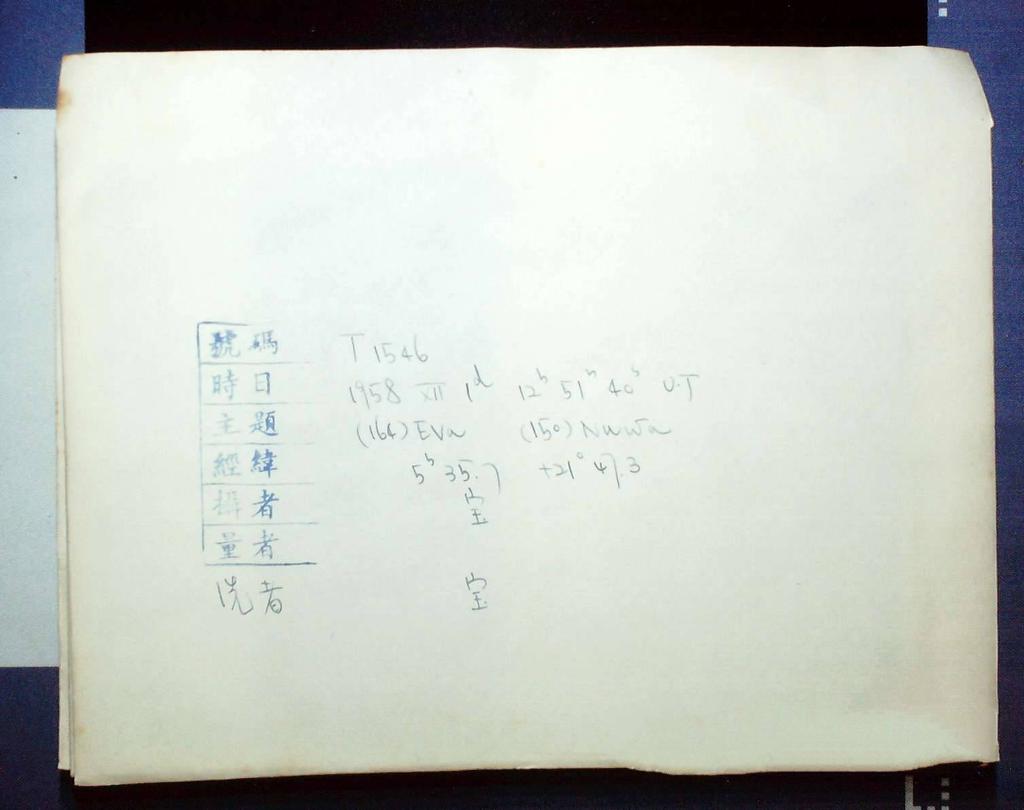 號碼 T 1546
時日 1958 XII 1ᵈ 12ʰ 51ᵐ 40ˢ U.T
主題 (164) Eva (150) Nuwa
經緯 5ʰ 35.7 +21° 47.3
攝者 宝
量者
洗者 宝